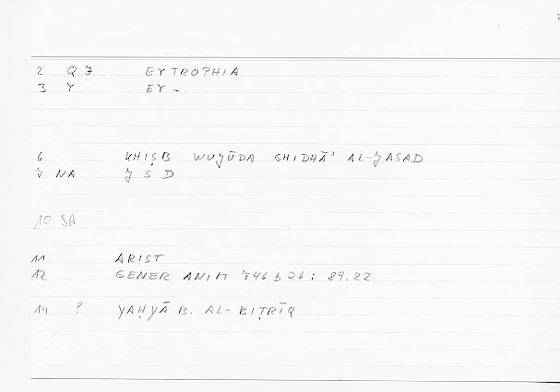 2 Q J EYTROPHIA
3 Y EY -
6 KHIṢB WUJŪDA GHIDHĀ' AL-JASAD
7 NA J S D
10 SA
11 ARIST
12 GENER ANIM 746 b 26 : 89.22
14 ? YAḤYĀ B. AL-BIṬRĪQ